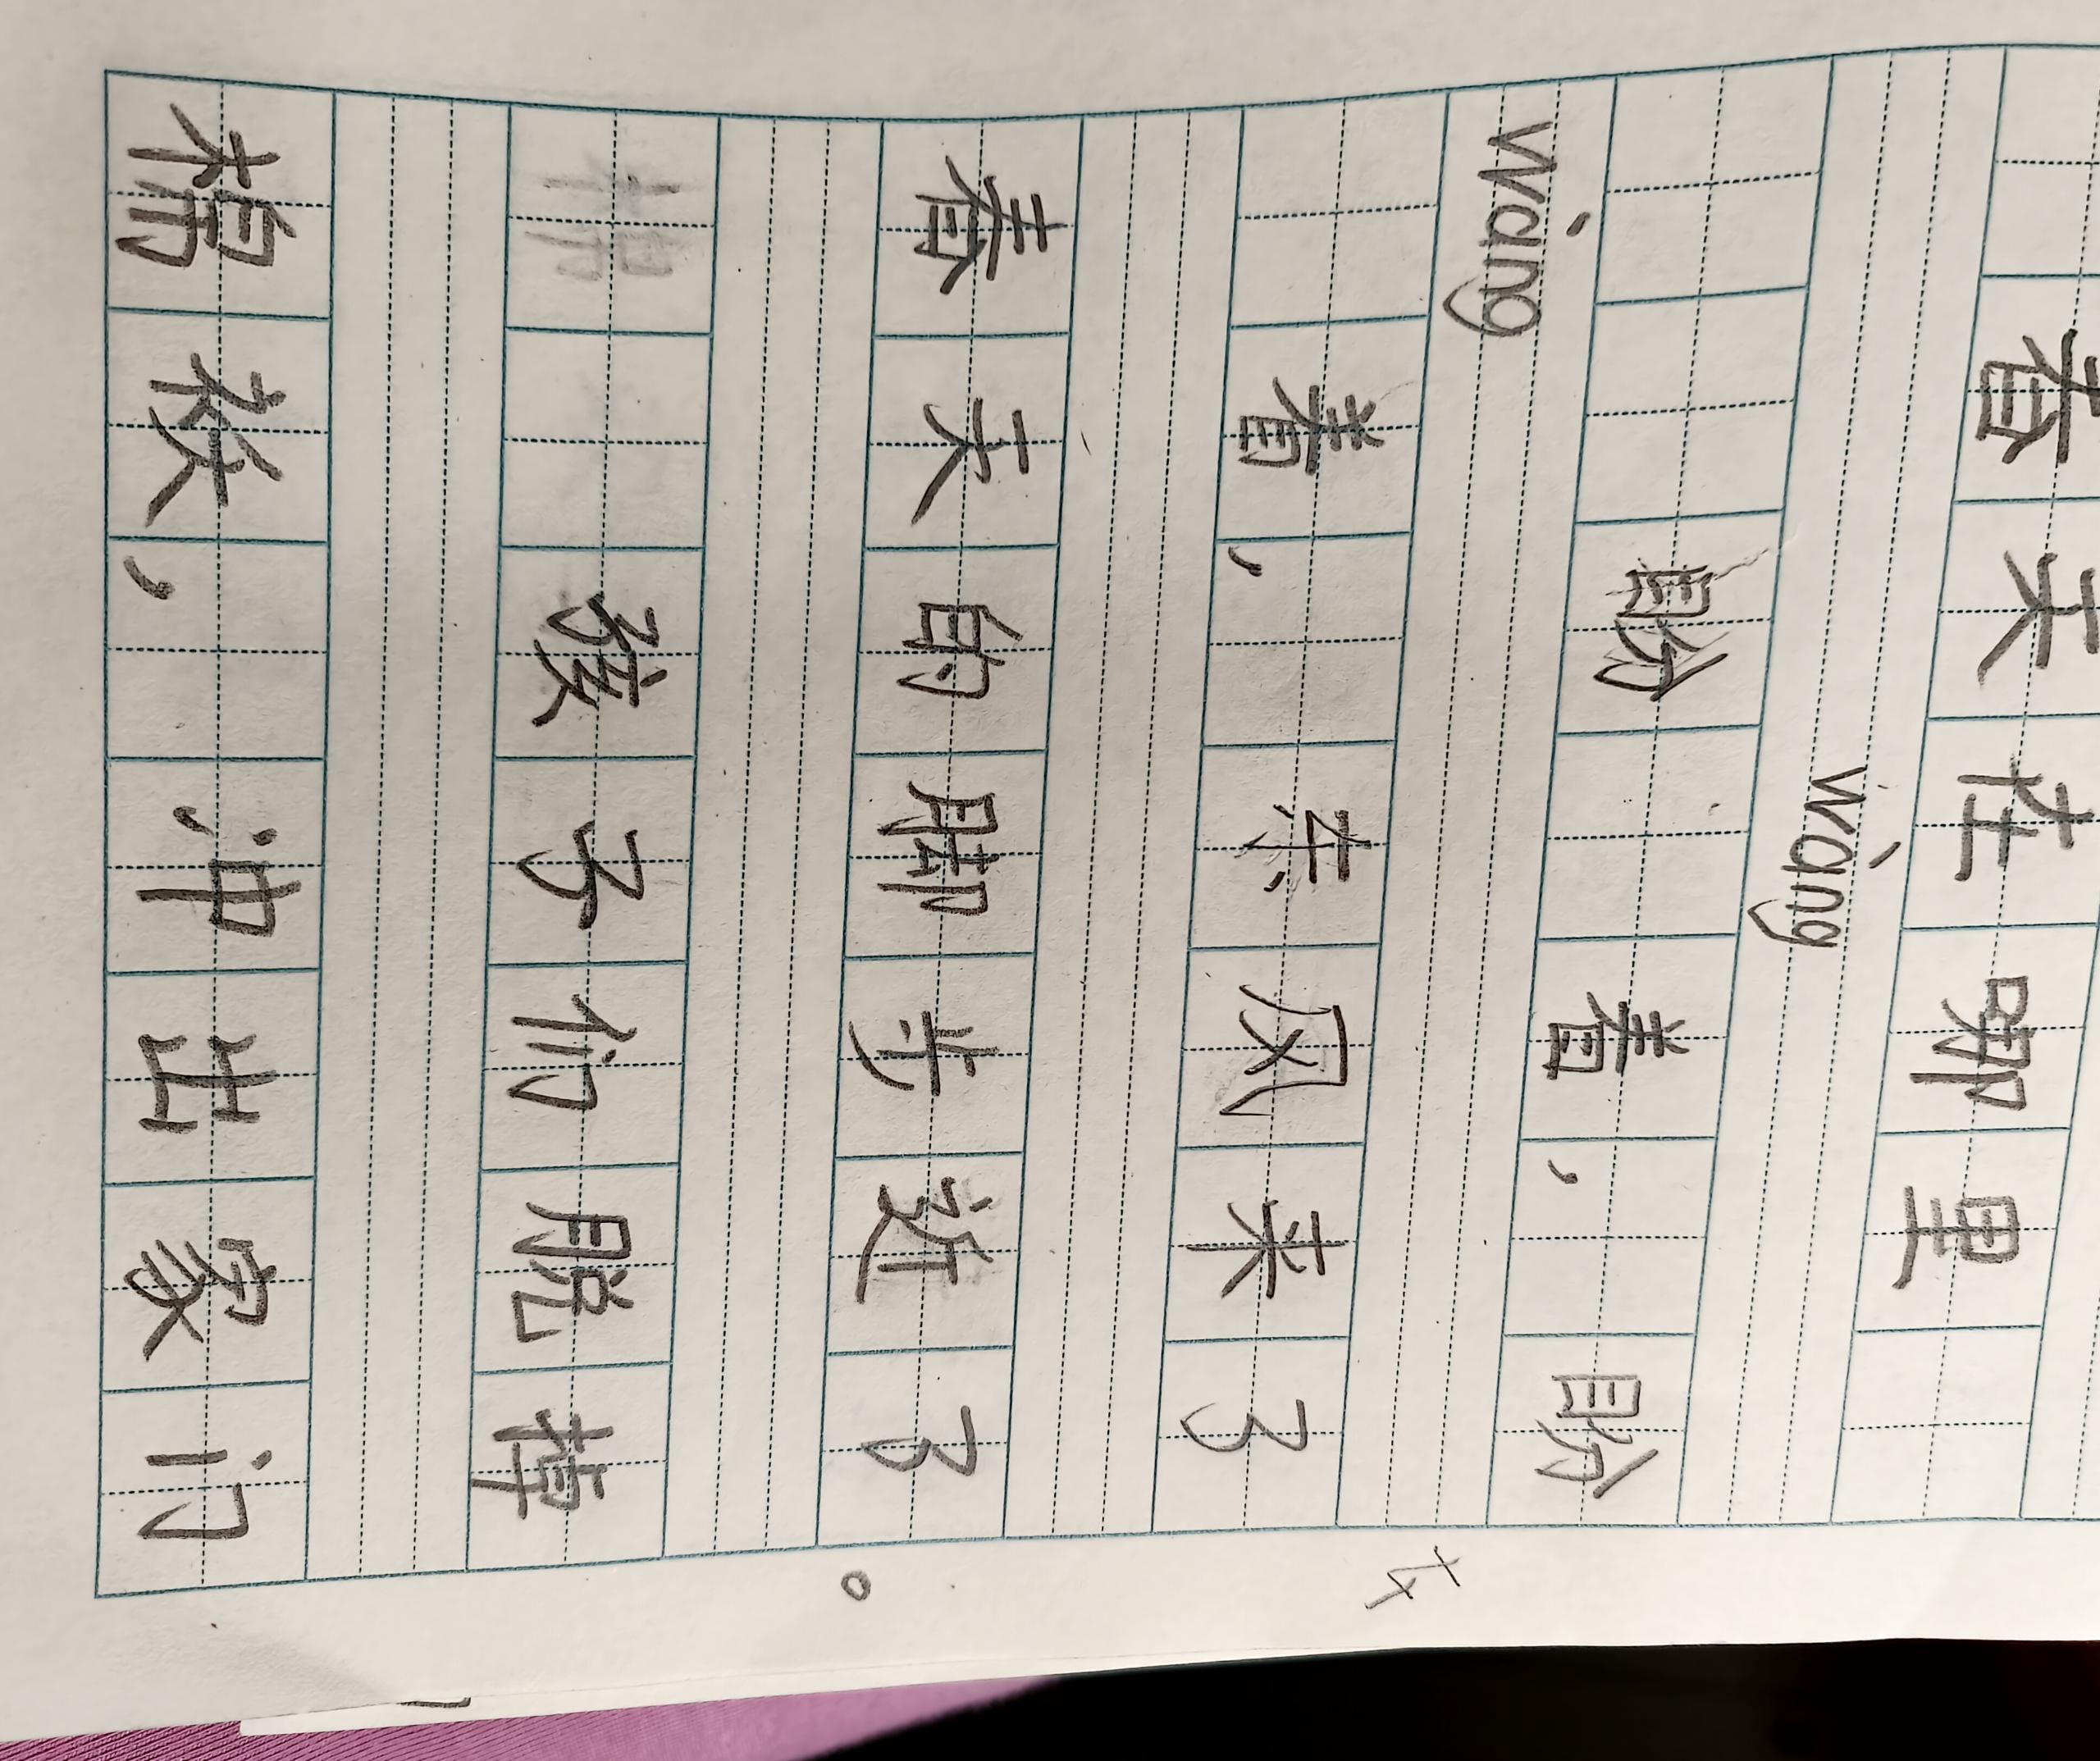 春天在哪里
wàng
盼着，盼
wàng
着，东风来了
春天的脚步近了。
孩子们脱掉
棉袄，冲出家门